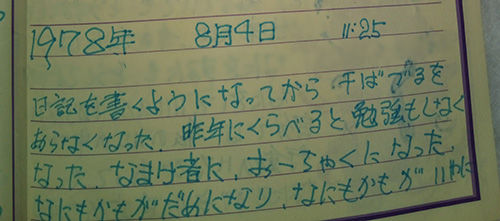 1978年 8月4日 11:25
日記を書くようになってから
あらなくなった、昨年にくらべると勉強もしなく
なった、なまけ者に、おーちゃくになった、
なにもかもがだめになり、なにもかもが